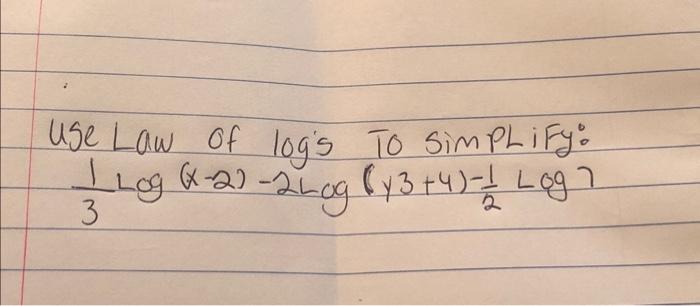 Use Law of log's To SimPLiFy:
1/3 Log (x-2) -2Log (y3+4)-1/2 Log 7